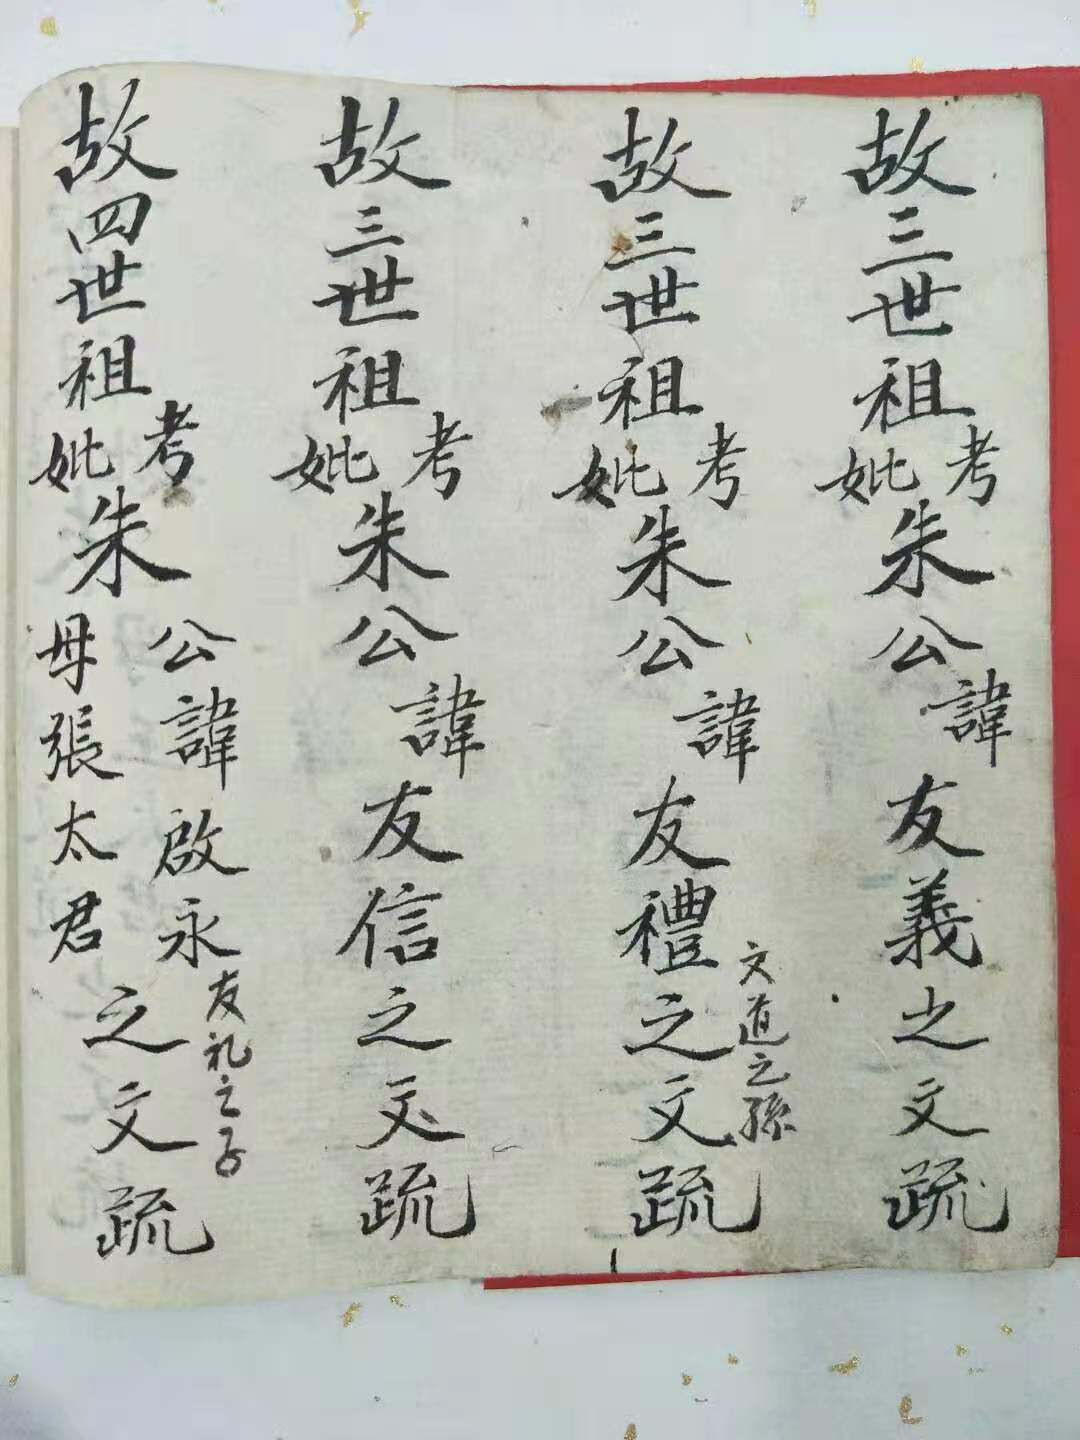 故三世祖考妣朱公諱友義之文疏
故三世祖考妣朱公諱友禮之文疏
文道之孫
故三世祖考妣朱公諱友信之文疏
故四世祖考妣朱公諱啟永母張太君之文疏
友礼之子